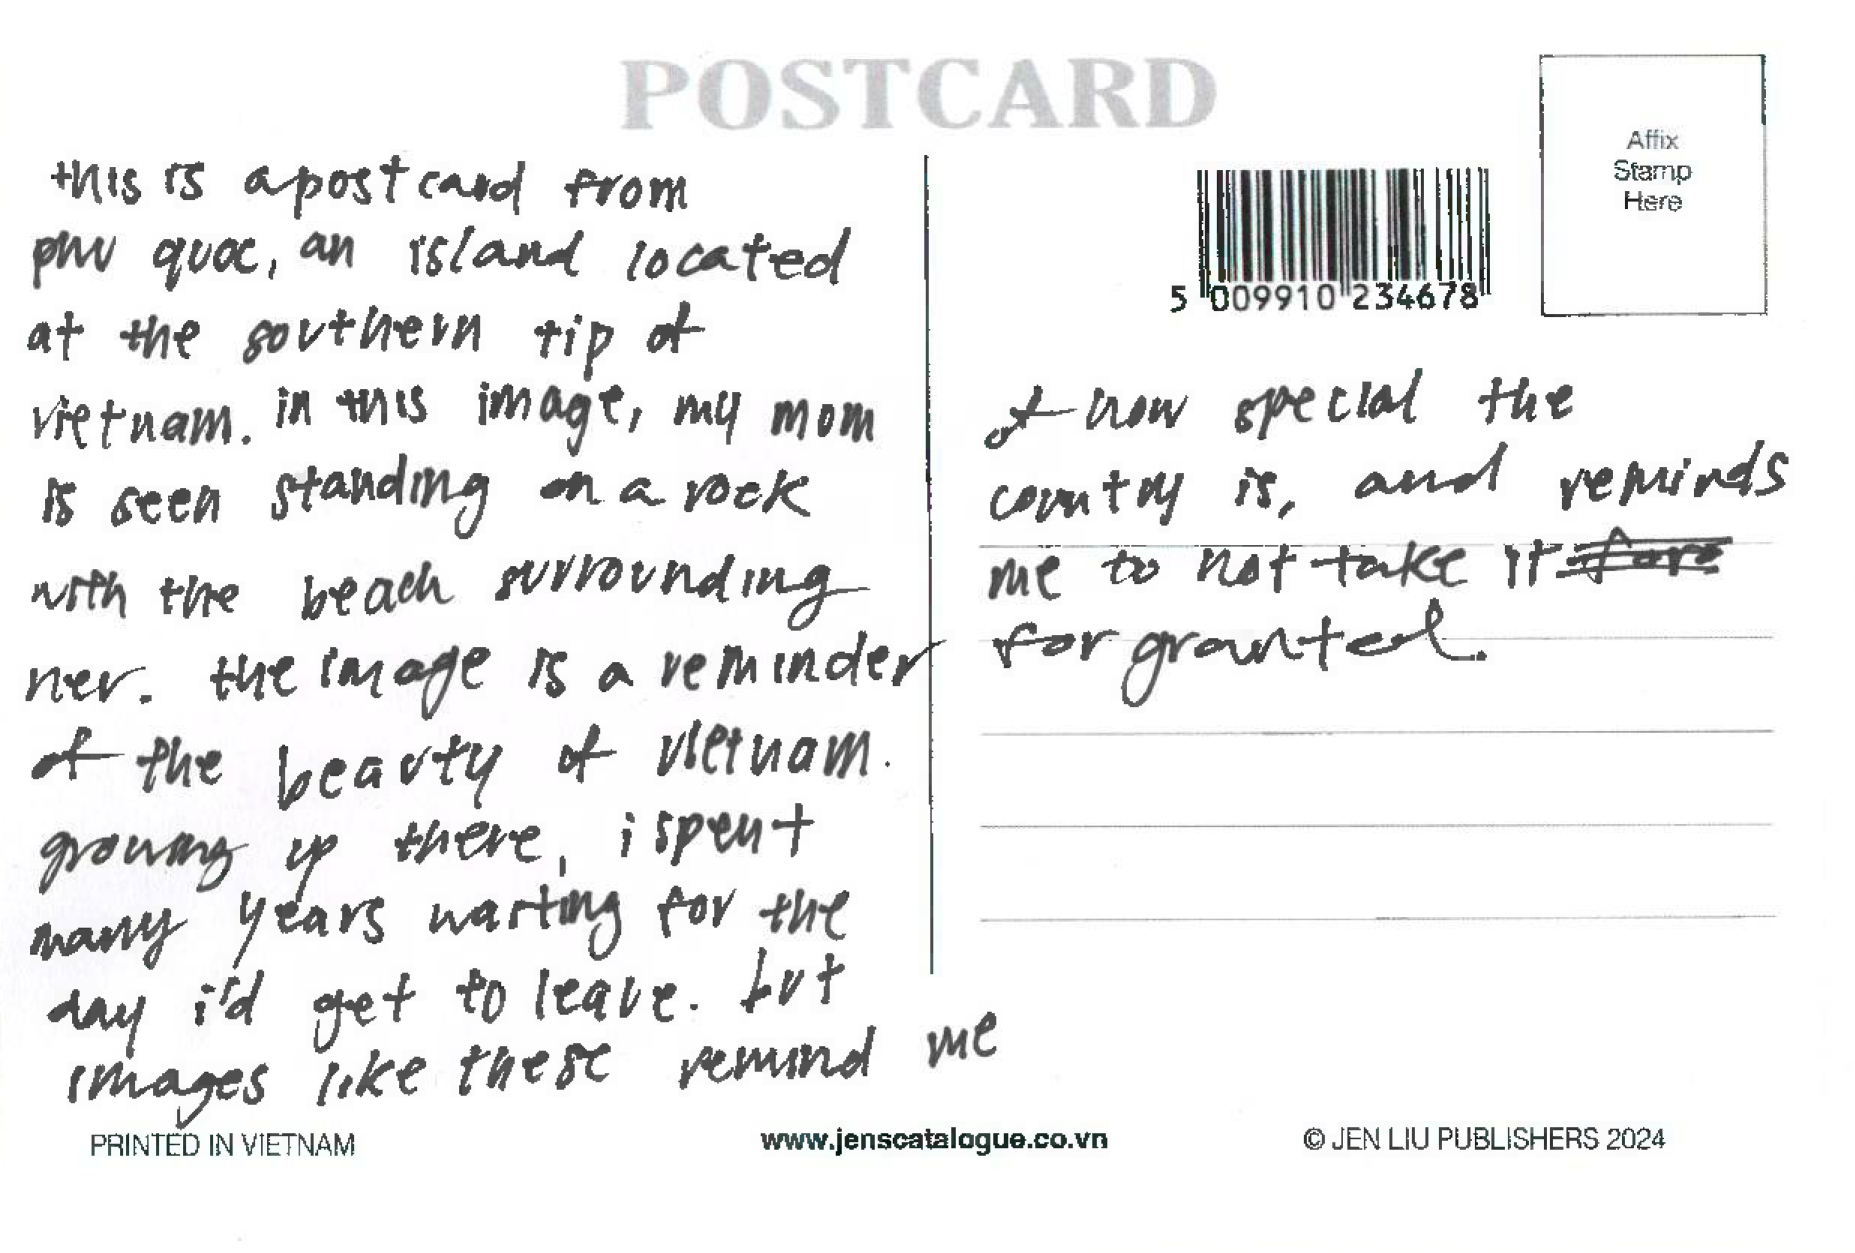 POSTCARD
Affix
Stamp
Here
5 009910 234678
this is a postcard from
phu quoc, an island located
at the southern tip of
vietnam. in this image, my mom
is seen standing on a rock
with the beach surrounding
her. the image is a reminder
of the beauty of vietnam.
growing up there, i spent
many years waiting for the
day i'd get to leave. but
images like these remind me
of how special the
country is, and reminds
me to not take it fore
for granted.
PRINTED IN VIETNAM
www.jenscatalogue.co.vn
© JEN LIU PUBLISHERS 2024